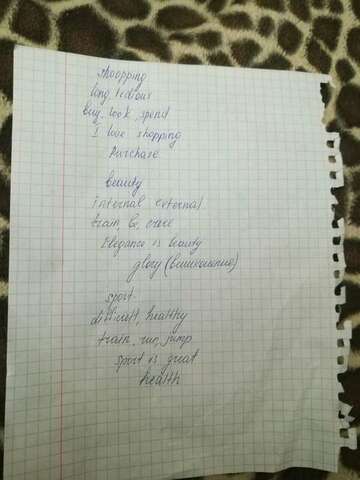 shoopping
long tedious
buy, look, spend
I love shopping
Purchase
beauty
internal external
train, be,
Elegance is beauty
glory (великолепие)
sport
difficalt, healthy
train, run, jump
sport is great
health